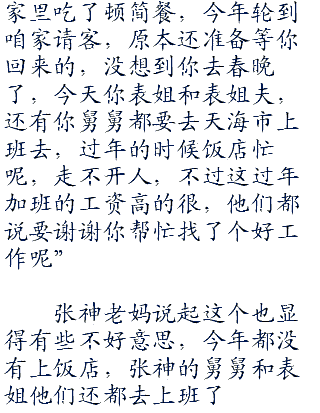 家里吃了顿简餐，今年轮到
咱家请客，原本还准备等你
回来的，没想到你去春晚
了，今天你表姐和表姐夫，
还有你舅舅都要去天海市上
班去，过年的时候饭店忙
呢，走不开人，不过这过年
加班的工资高的很，他们都
说要谢谢你帮忙找了个好工
作呢”
张神老妈说起这个也显
得有些不好意思，今年都没
有上饭店，张神的舅舅和表
姐他们还都去上班了